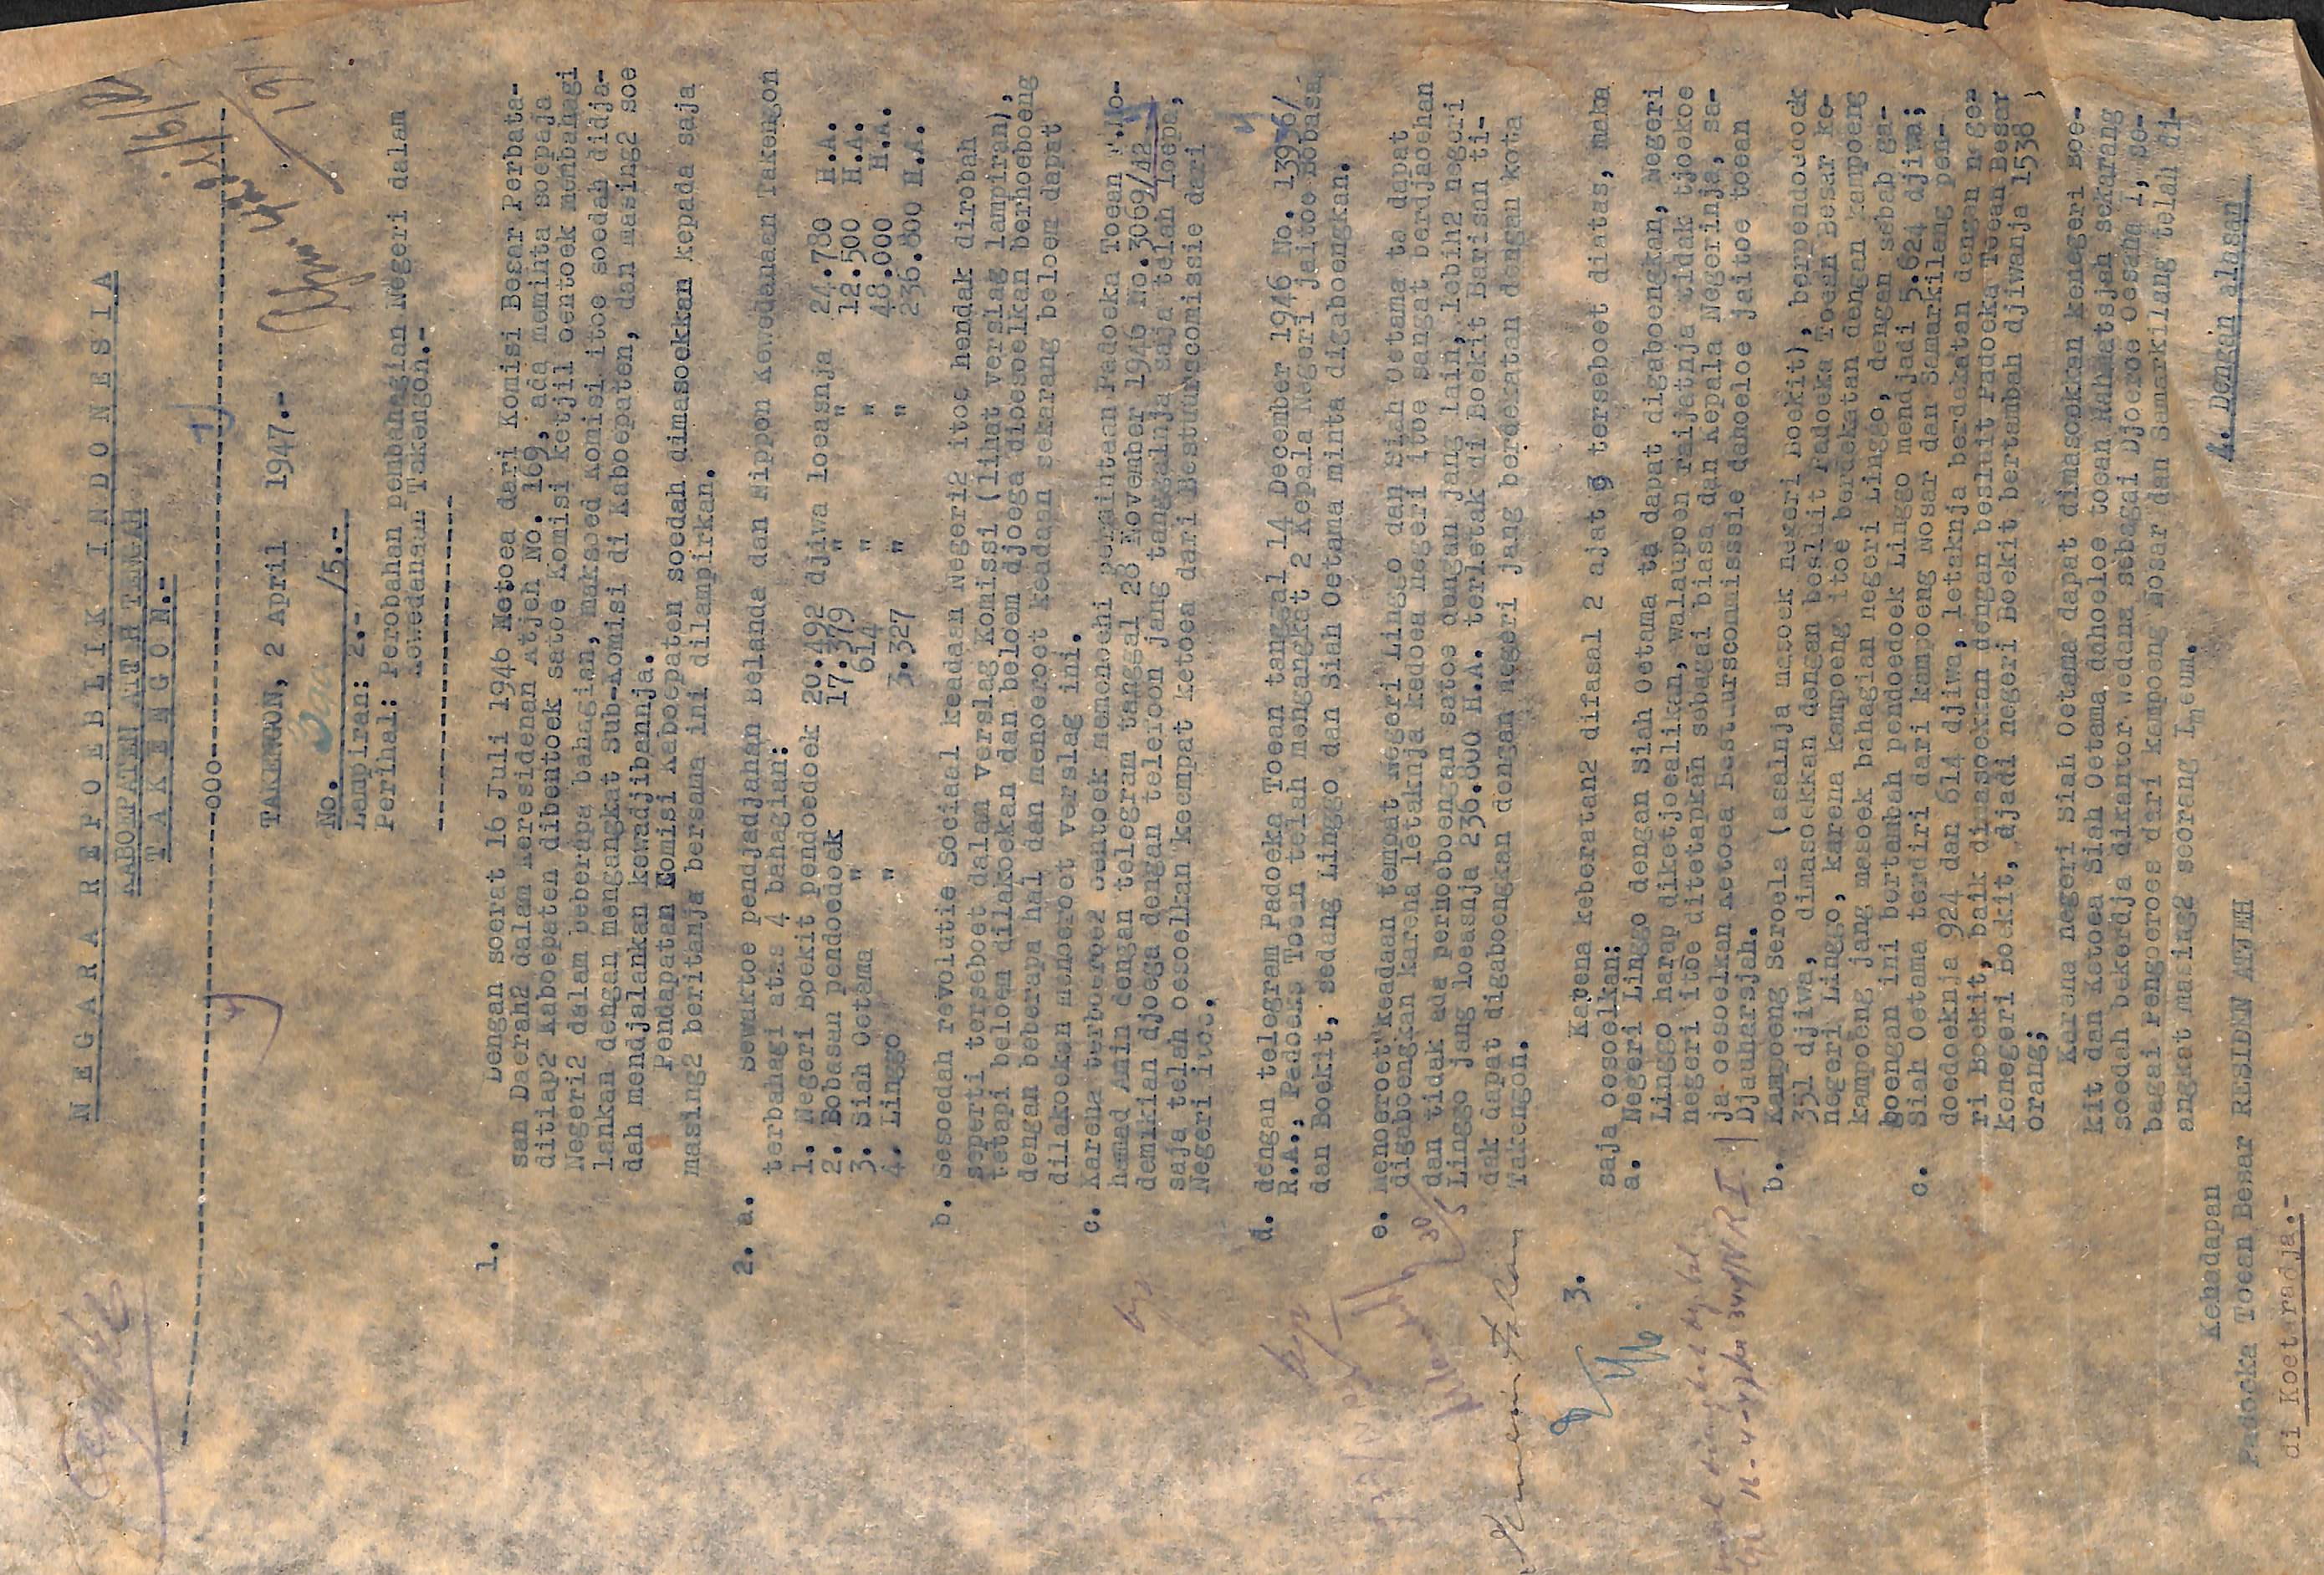 N E G A R A R E P O E B L I K I N D O N E S I A
KABOEPATEN ATJEH TENGAH
T A K E N G O N.-
-------------------ooo-------------------
TAKENGON, 2 April 1947.-
No. /5.-
Lampiran: 2.-
Perihal: Perobahan pembahagian Negeri dalam
Kewedanaan Takengon.-
--------------------
1. Dengan soerat 16 Juli 1946 Ketoea dari Komisi Besar Perbata-
san Daerah2 dalam Keresidenan Atjeh No. 169, ada meminta soepaja
ditiap2 Kaboepaten dibentoek satoe Komisi ketjil oentoek membahagi
Negeri2 dalam beberapa bahagian, maksoed Komisi itoe soedah didja-
lankan dengan mengangkat Sub-Komisi di Kaboepaten, dan masing2 soe
dah mendjalankan kewadjibannja.
Pendapatan Komisi Kaboepaten soedah dimasoekkan kepada saja
masing2 beritanja bersama ini dilampirkan.
2. a. Sewaktoe pendjadjahan Belanda dan Nippon Kewedanaan Takengon
terbahagi atas 4 bahagian:
1. Negeri Boekit pendoedoek 20.492 djiwa loeasnja 24.780 H.A.
2. Bobasan pendoedoek 17.379 " " 12.500 H.A.
3. Siah Oetama " 614 " " 48.000 H.A.
4. Linggo " 3.327 " " 236.800 H.A.
b. Sesoedah revolutie Sociaal keadaan Negeri2 itoe hendak dirobah
seperti terseboet dalam verslag Komissi (lihat verslag lampiran),
tetapi beloem dilakoekan dan beloem djoega dibesoelkan berhoeboeng
dengan beberapa hal dan menoeroet keadaan sekarang beloem dapat
dilakoekan menoeroet verslag ini.
c. Karena terboeroe2 oentoek memenoehi permintaan Padoeka Toean M.Mo-
hamad Amin dengan telegram tanggal 28 November 1946 No.3069/42
demikian djoega dengan telefoon jang tanggalnja saja telah loepa,
saja telah oesoelkan keempat ketoea dari Bestuurscomissie dari
Negeri itoe.
d. dengan telegram Padoeka Toean tanggal 14 December 1946 No. 13976/
R.A., Padoeka Toean telah mengangkat 2 Kepala Negeri jaitoe Bobasa
dan Boekit, sedang Linggo dan Siah Oetama minta digaboengkan.
e. Menoeroet keadaan tempat Negeri Linggo dan Siah Oetama ta dapat
digaboengkan karena letaknja kedoea negeri itoe sangat berdjaoehan
dan tidak ada perhoeboengan satoe dengan jang lain, lebih2 negeri
Linggo jang loeasnja 236.800 H.A. terletak di Boekit Barisan ti-
dak dapat digaboengkan dengan negeri jang berdekatan dengan kota
Takengon.
3. Karena keberatan2 difasal 2 ajat terseboet diatas, maka
saja oesoelkan:
a. Negeri Linggo dengan Siah Oetama ta dapat digaboengkan, Negeri
Linggo harap diketjoealikan, walaupoen raijatnja tidak tjoekoe
negeri itoe ditetapkan sebagai biasa dan Kepala Negerinja, sa-
ja oesoelkan Ketoea Bestuurscommissie dahoeloe jaitoe toean
Djauharsjah.
b. Kampoeng Seroela (asalnja masoek negeri Boekit), berpendoedoek
351 djiwa, dimasoekkan dengan besluit Padoeka Toean Besar ke-
negeri Linggo, karena kampoeng itoe berdekatan dengan kampoeng
kampoeng jang masoek bahagian negeri Linggo, dengan sebab ga-
boengan ini bertambah pendoedoek Linggo mendjadi 5.624 djiwa;
c. Siah Oetama terdiri dari kampoeng Nosar dan Samarkilang pen-
doedoeknja 924 dan 614 djiwa, letaknja berdekatan dengan neger
ri Boekit, baik dimasoekkan dengan besluit Padoeka Toean Besar
kenegeri Boekit, djadi negeri Boekit bertambah djiwanja 1538
orang;
Karena negeri Siah Oetama dapat dimasoekkan kenegeri Boe-
kit dan Ketoea Siah Oetama dahoeloe toean Rahmatsjah sekarang
soedah bekerdja dikantor Wedana sebagai Djoeroe Oesaha I, se-
bagai Pengoeroes dari kampoeng Nosar dan Samarkilang telah di-
angkat masing2 seorang Imeum.
4. Dengan alasan
Kehadapan
Padoeka Toean Besar RESIDEN ATJEH
di Koetaradja.-